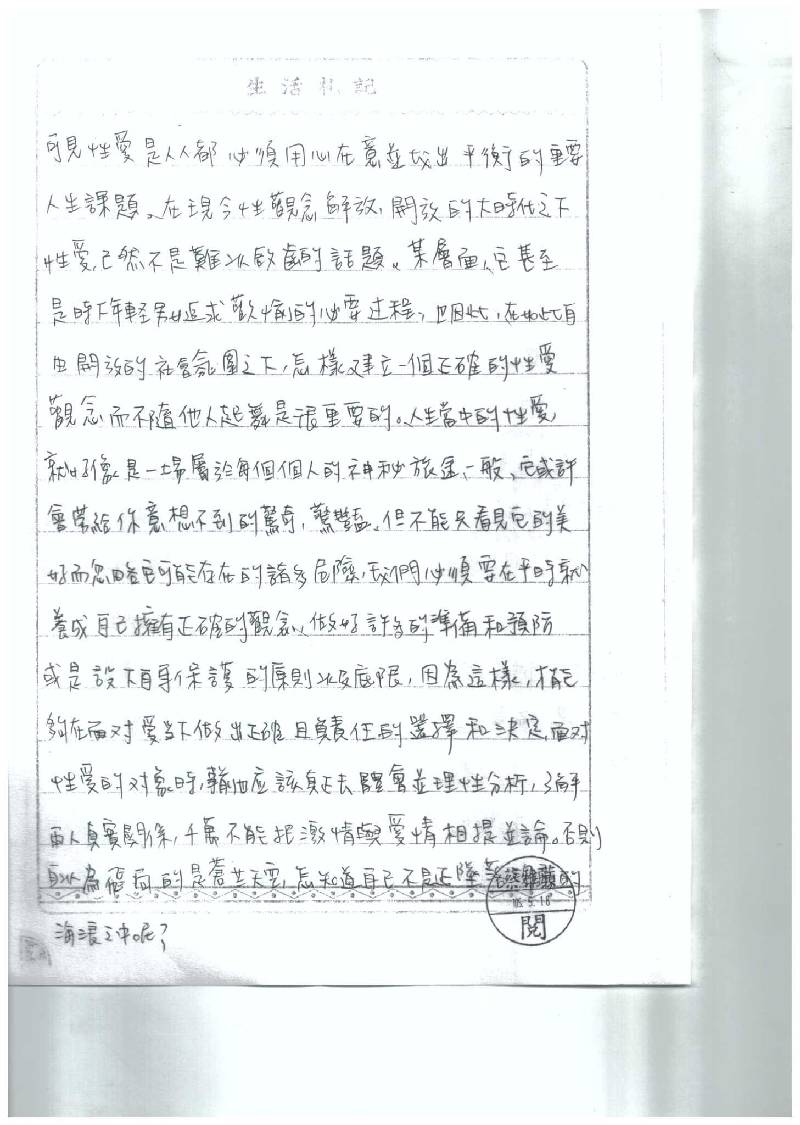 生活札記
可見性愛是人人都必須用心在意並找出平衡的重要
人生課題。在現今性觀念解放，開放的大時代之下
性愛已然不是難以啟齒的話題。某層面，它甚至
是時下年輕男女追求歡愉的必要过程，也因此，在如此自
由開放的社會氛圍之下，怎樣建立一個正確的性愛
觀念而不隨他人起舞是很重要的。人生當中的性愛，
就好像是一場屬於每個個人的神秘旅途一般，它或許
會帶給你意想不到的驚奇，驚豔。但不能只看見它的美
好而忽略它可能存在的諸多危險，我們必須要在平時就
養成自己擁有正確的觀念、做好許多的準備和預防
或是設下自身保護的原則以及底限，因為這樣，才能
夠在面对愛當下做出正確且負責任的選擇和決定，面对
性愛的对象時，應該身正去體會並理性分析，了解
兩人真實關係，千萬不能把激情與愛情相提並論。否則
自以為飛向的是蒼茫天空，怎知道自己不是正墜 的
海浪之中呢？
5.18
閱